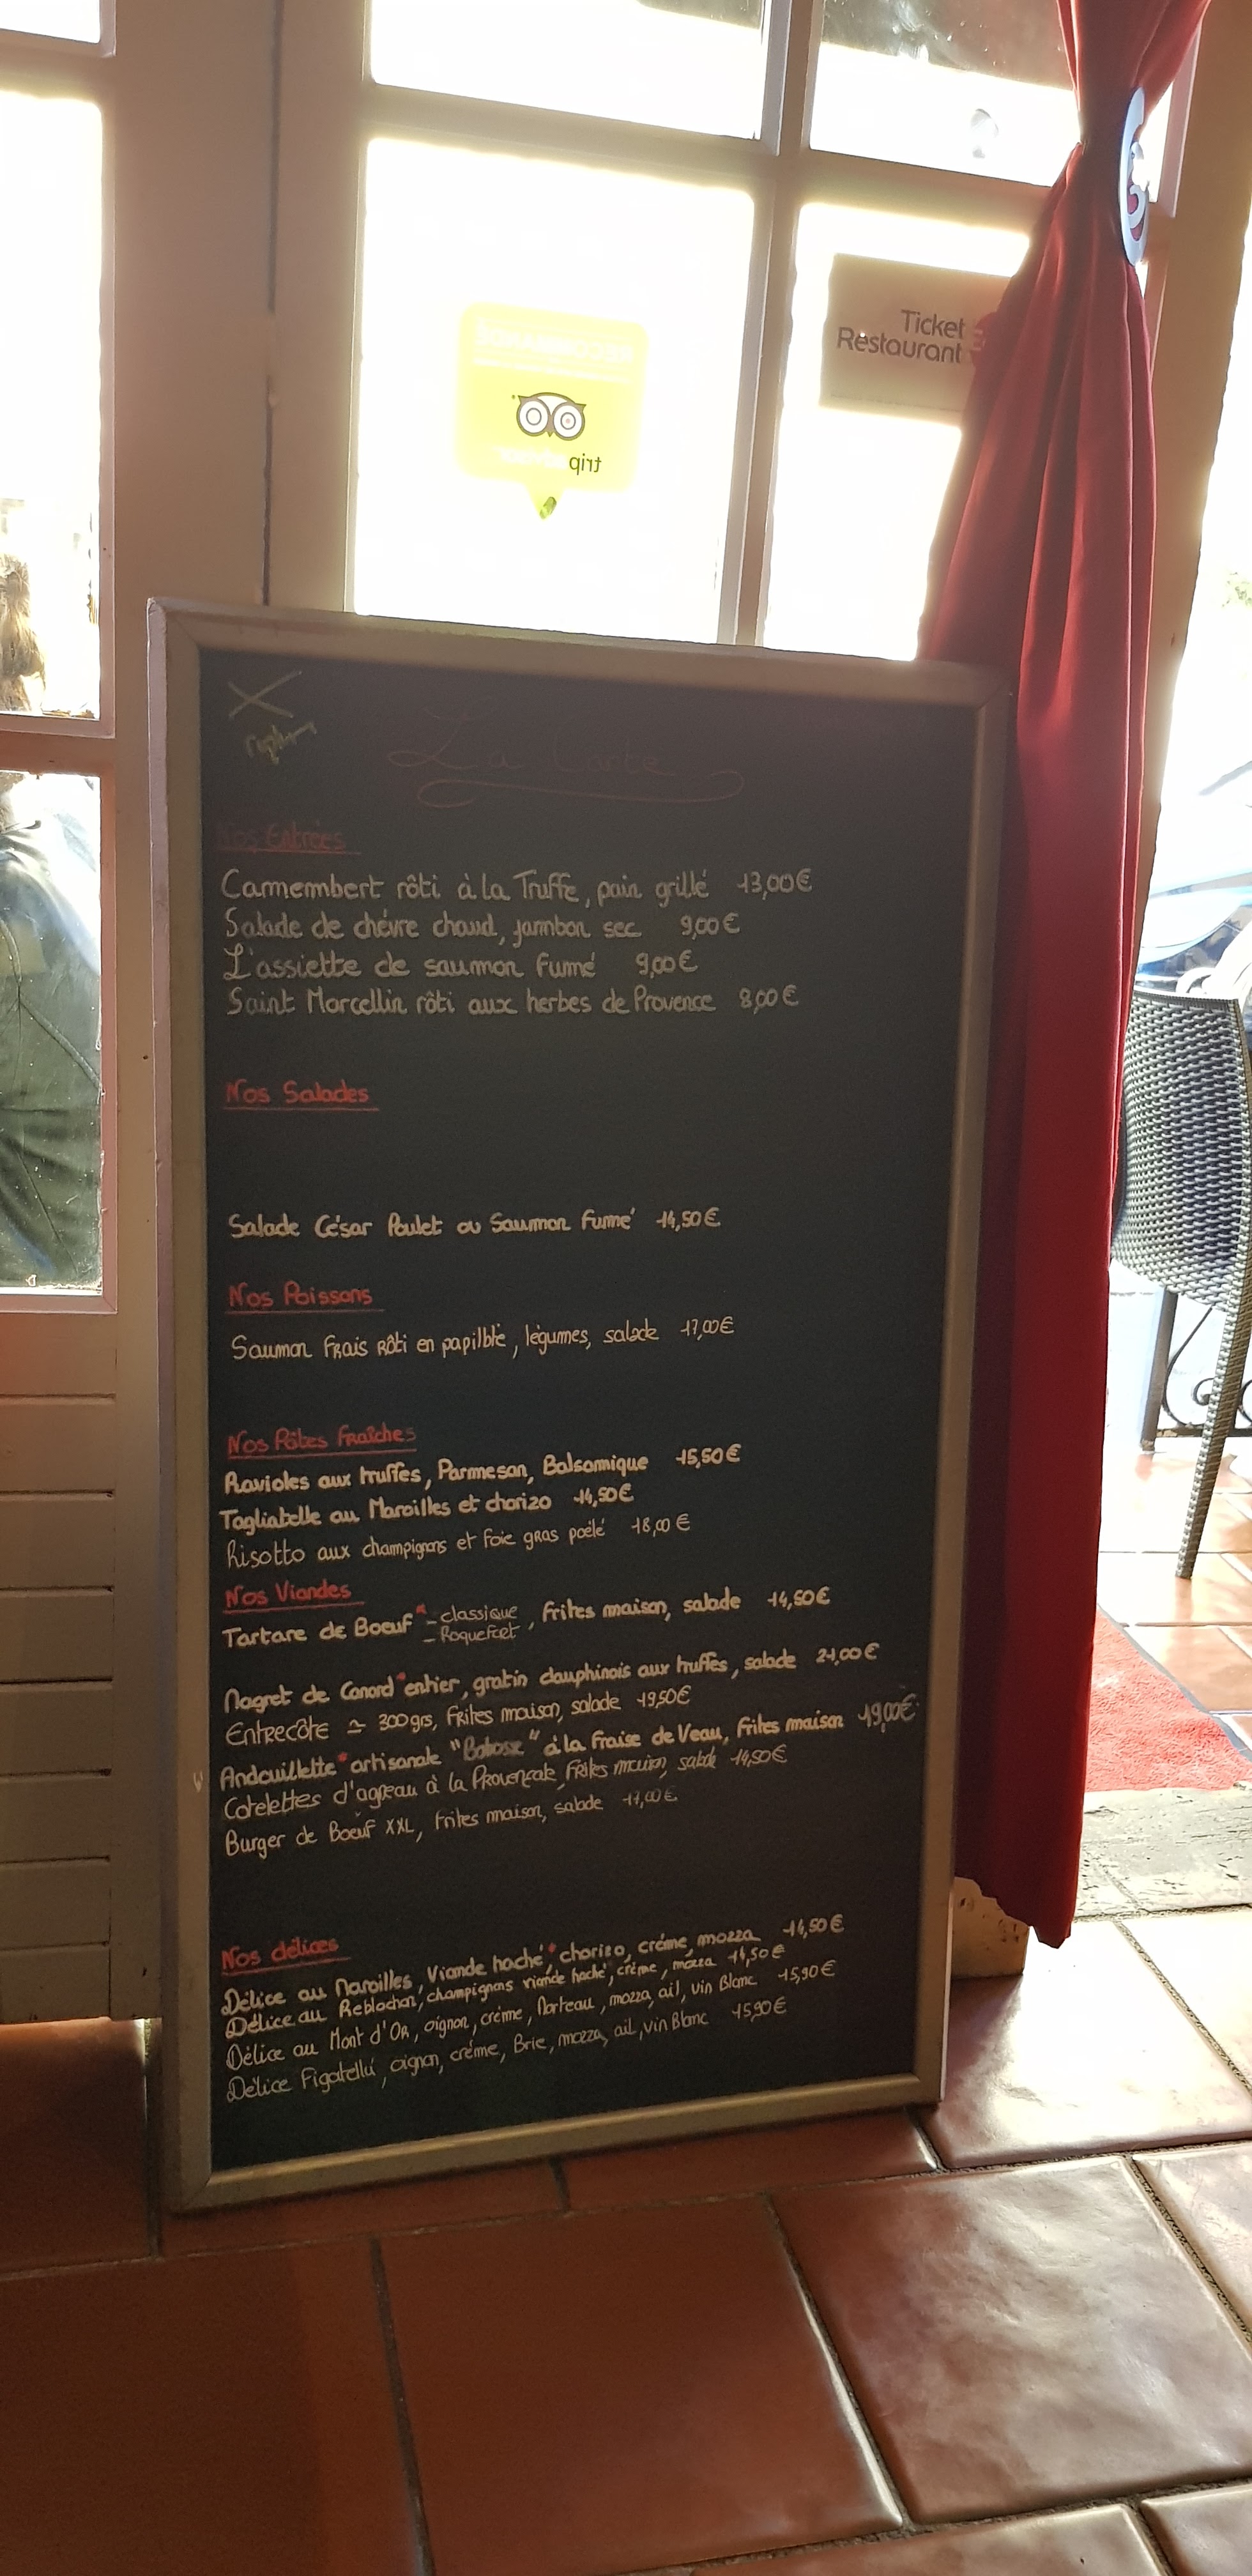 Ticket
Restaurant
trip
La Carte
Nos Entrées
Camembert rôti à la Truffe, pain grillé 13,00€
Salade de chèvre chaud, jambon sec 9,00€
L'assiette de saumon fumé 9,00€
Saint Marcellin rôti aux herbes de Provence 8,00€
Nos Salades
Salade César Poulet ou Saumon Fumé 14,50€
Nos Poissons
Saumon Frais Rôti en papillote, légumes, salade 17,00€
Nos Pâtes Fraîches
Ravioles aux truffes, Parmesan, Balsamique 15,50€
Tagliatelle au Maroilles et chorizo 14,50€
Risotto aux champignons et foie gras poêlé 18,00€
Nos Viandes
Tartare de Boeuf* - classique, Frites maison, salade 14,50€
- Roquefort
Magret de Canard* entier, gratin dauphinois aux truffes, salade 21,00€
Entrecôte ≃ 300grs, Frites maison, salade 19,50€
Andouillette* artisanale " " à la Fraise de Veau, Frites maison 19,00€
Cotelettes d'agneau à la Provençale, Frites maison, salade 14,50€
Burger de Boeuf XXL, Frites maison, salade 17,00€
Nos délices
Délice au Maroilles, Viande haché*, chorizo, crème, mozza 14,50€
Délice au Reblochon, champignons viande haché, crème, mozza 14,50€
Délice au Mont d'Or, oignon, crème, Morteau, mozza, ail, vin Blanc 15,90€
Délice Figatellu, oignon, crème, Brie, mozza, ail, vin Blanc 15,90€